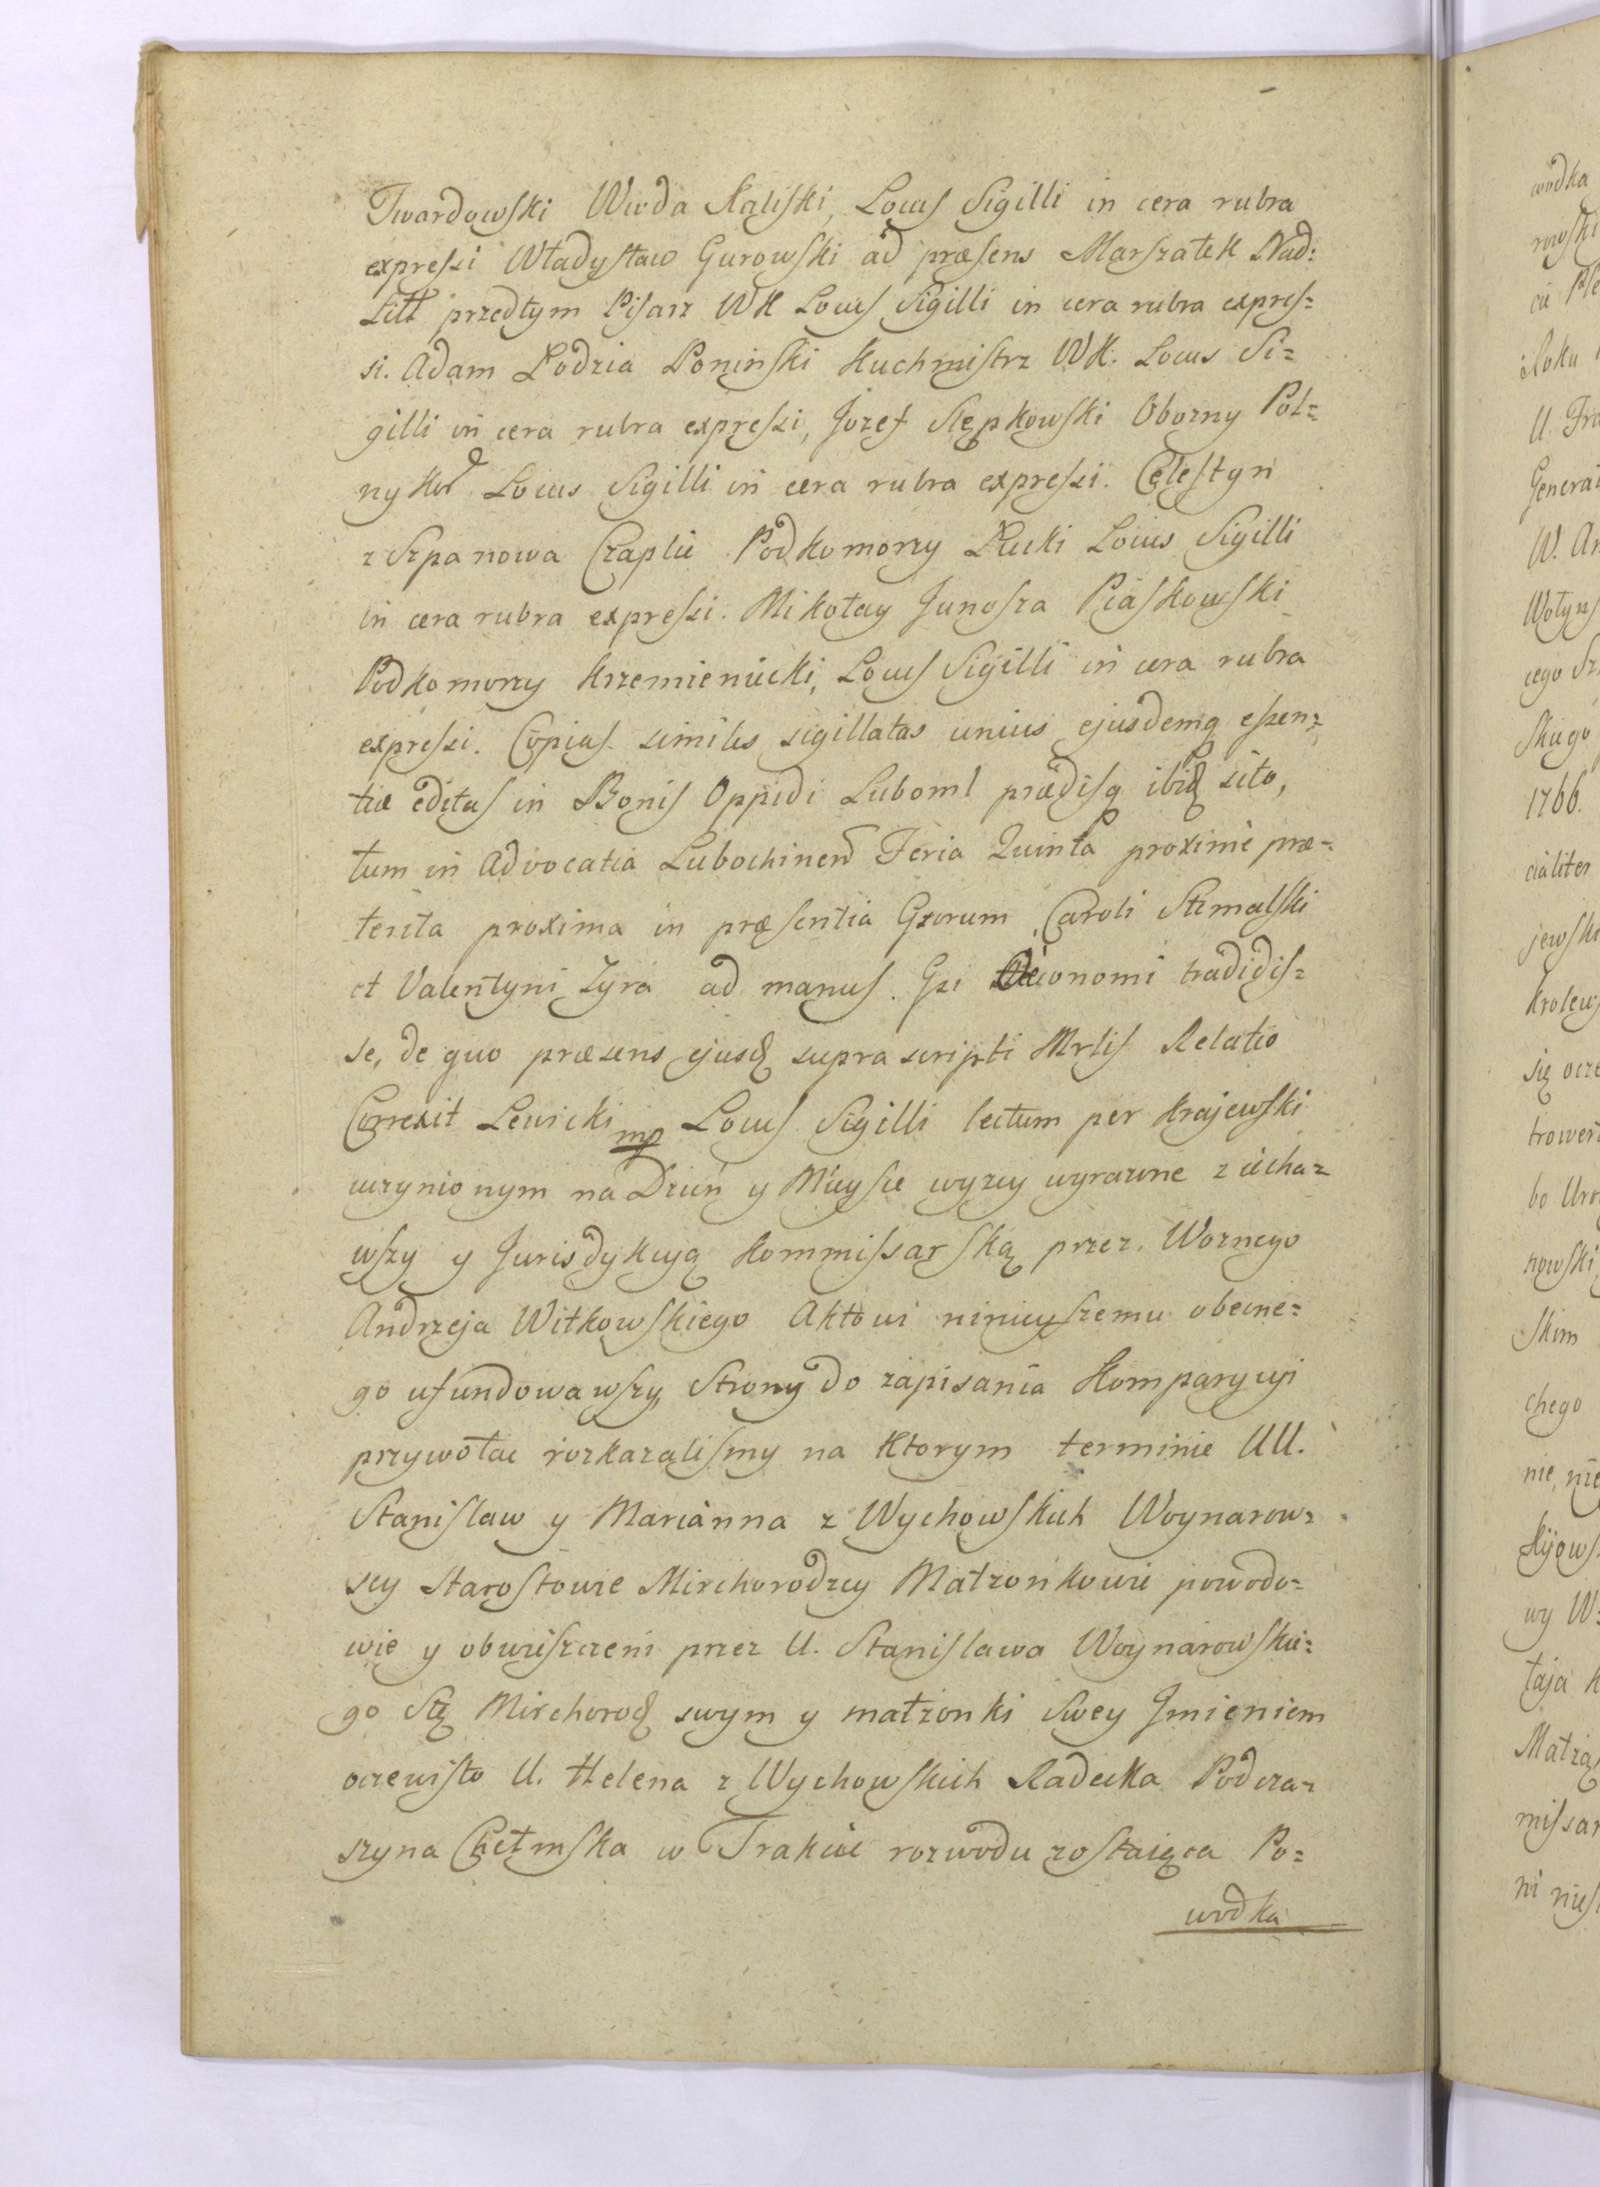 Twardowski Wwda Kaliski, Locus Sigilli in cera rubra
expressi Władysław Gurowski ad præsens Marszałek Nad:
Litt przedtym Pisarz WK Locus Sigilli in cera rubra expres=
si. Adam Łodzia Poninski Kuchmistrz WK. Locus Si=
gilli in cera rubra expressi, Jozef Stępkowski Obozny Pol=
ny Kor Locus Sigilli in cera rubra expressi. Celestyn
z Szpanowa Czaplic Podkomorzy Łucki Locus Sigilli
in cera rubra expressi. Mikołay Junosza Piaskowski
Podkomorzy Krzemieniecki, Locus Sigilli in cera rubra
expressi. Copias similes sigillatas unius ejusdemq essen=
tiæ editas in Bonis Oppidi Luboml prædisq ibiq sito,
tum in Advocatia Lubochinen Feria Quinta proxime præ=
terita proxima in præsentia Gxorum Caroli Stemalski
et Valentyni Zyra ad manus Gsi Oeconomi tradidis=
se, de quo præsens ejusd supra scripti Mrlis Relatio
Correxit Lewicki mp Locus Sigilli lectum per Krajewski
uczynionym na Dzien y Mieysce wyzey wyrazone ziecha=
wszy y Jurisdykcyą Kommissarską przez Woznego
Andrzeja Witkowskiego Aktowi ninieyszemu obecne=
go ufundowawszy, Strony do zapisania Komparycyi
przywołac rozkazalismy na Ktorym terminie UU.
Stanislaw y Marianna z Wychowskich Woynarow=
scy Starostowie Mirchorodzcy Małzonkowie powodo=
wie y obwieszczeni przez U. Stanislawa Woynarowskie=
go Stę Mirchorod swym y małzonki swey Jmieniem
oczewisto U. Helena z Wychowskich Radecka Podcza=
szyna Chełmska w Trakcie rozwodu zostaiąca Po=
wodka
wodka
rowski
Roku
U. Fra
General
W. An
Wołyns
cego
skiego
1766.
cialiter
jewski
Krolews
się ocze
bo Uro
nowski
skim
chego
nie, nie
Kijows
wy W:
taja K
Małzą
missar